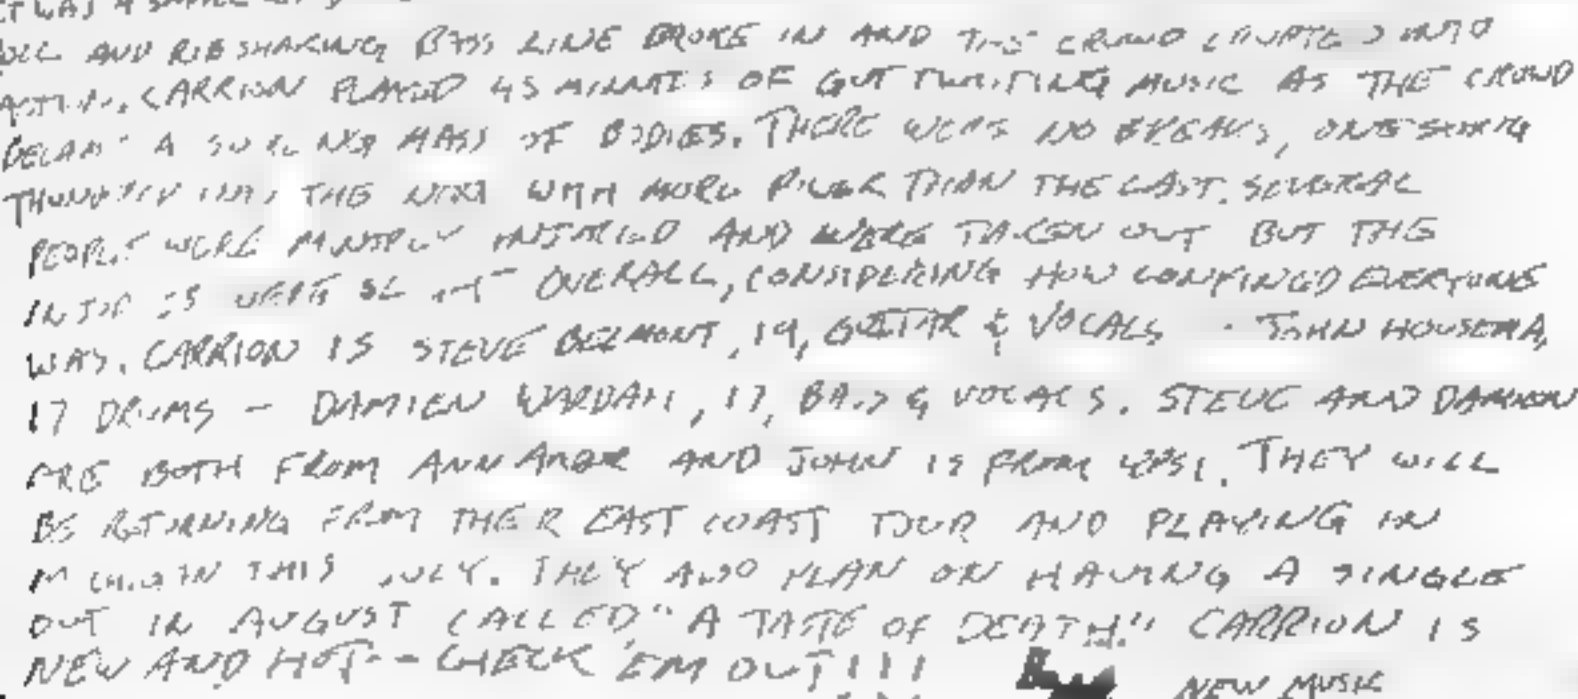 IT WAS A
AND RIB SHAKING BASS LINE BROKE IN AND THE CROWD ERUPTED INTO
CARRION PLAYED 45 MINUTES OF GUT TWISTING MUSIC AS THE CROWD
BECAME A MASS OF BODIES. THERE WERE NO BREAKS, ONE SONG
THE NEXT WITH MORE POWER THAN THE LAST. SEVERAL
PEOPLE WERE INJURED AND WERE TAKEN OUT BUT THE
WERE OVERALL, CONSIDERING HOW CONFINED EVERYONE
WAS. CARRION IS STEVE BELMONT, 19, GUITAR & VOCALS - JOHN HOUSEMA,
17 DRUMS - DAMIEN WARDAH, 17, BASS & VOCALS. STEVE AND DAMIEN
ARE BOTH FROM ANN ARBOR AND JOHN IS FROM YPSI. THEY WILL
BE RETURNING FROM THEIR EAST COAST TOUR AND PLAYING IN
MICHIGAN THIS JULY. THEY ALSO PLAN ON HAVING A SINGLE
OUT IN AUGUST CALLED "A TASTE OF DEATH." CARRION IS
NEW AND HOT -- CHECK 'EM OUT!!!
NEW MUSIC